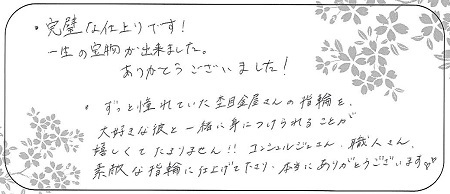 ・完璧な仕上りです!
一生の宝物が出来ました。
ありがとうございました!
・ずっと憧れていた杢目金屋さんの指輪を、
大好きな彼と一緒に身につけられることが
嬉しくてたまりません!! コンシェルジュさん、職人さん、
素敵な指輪に仕上げて下さり、本当にありがとうございます♡♡